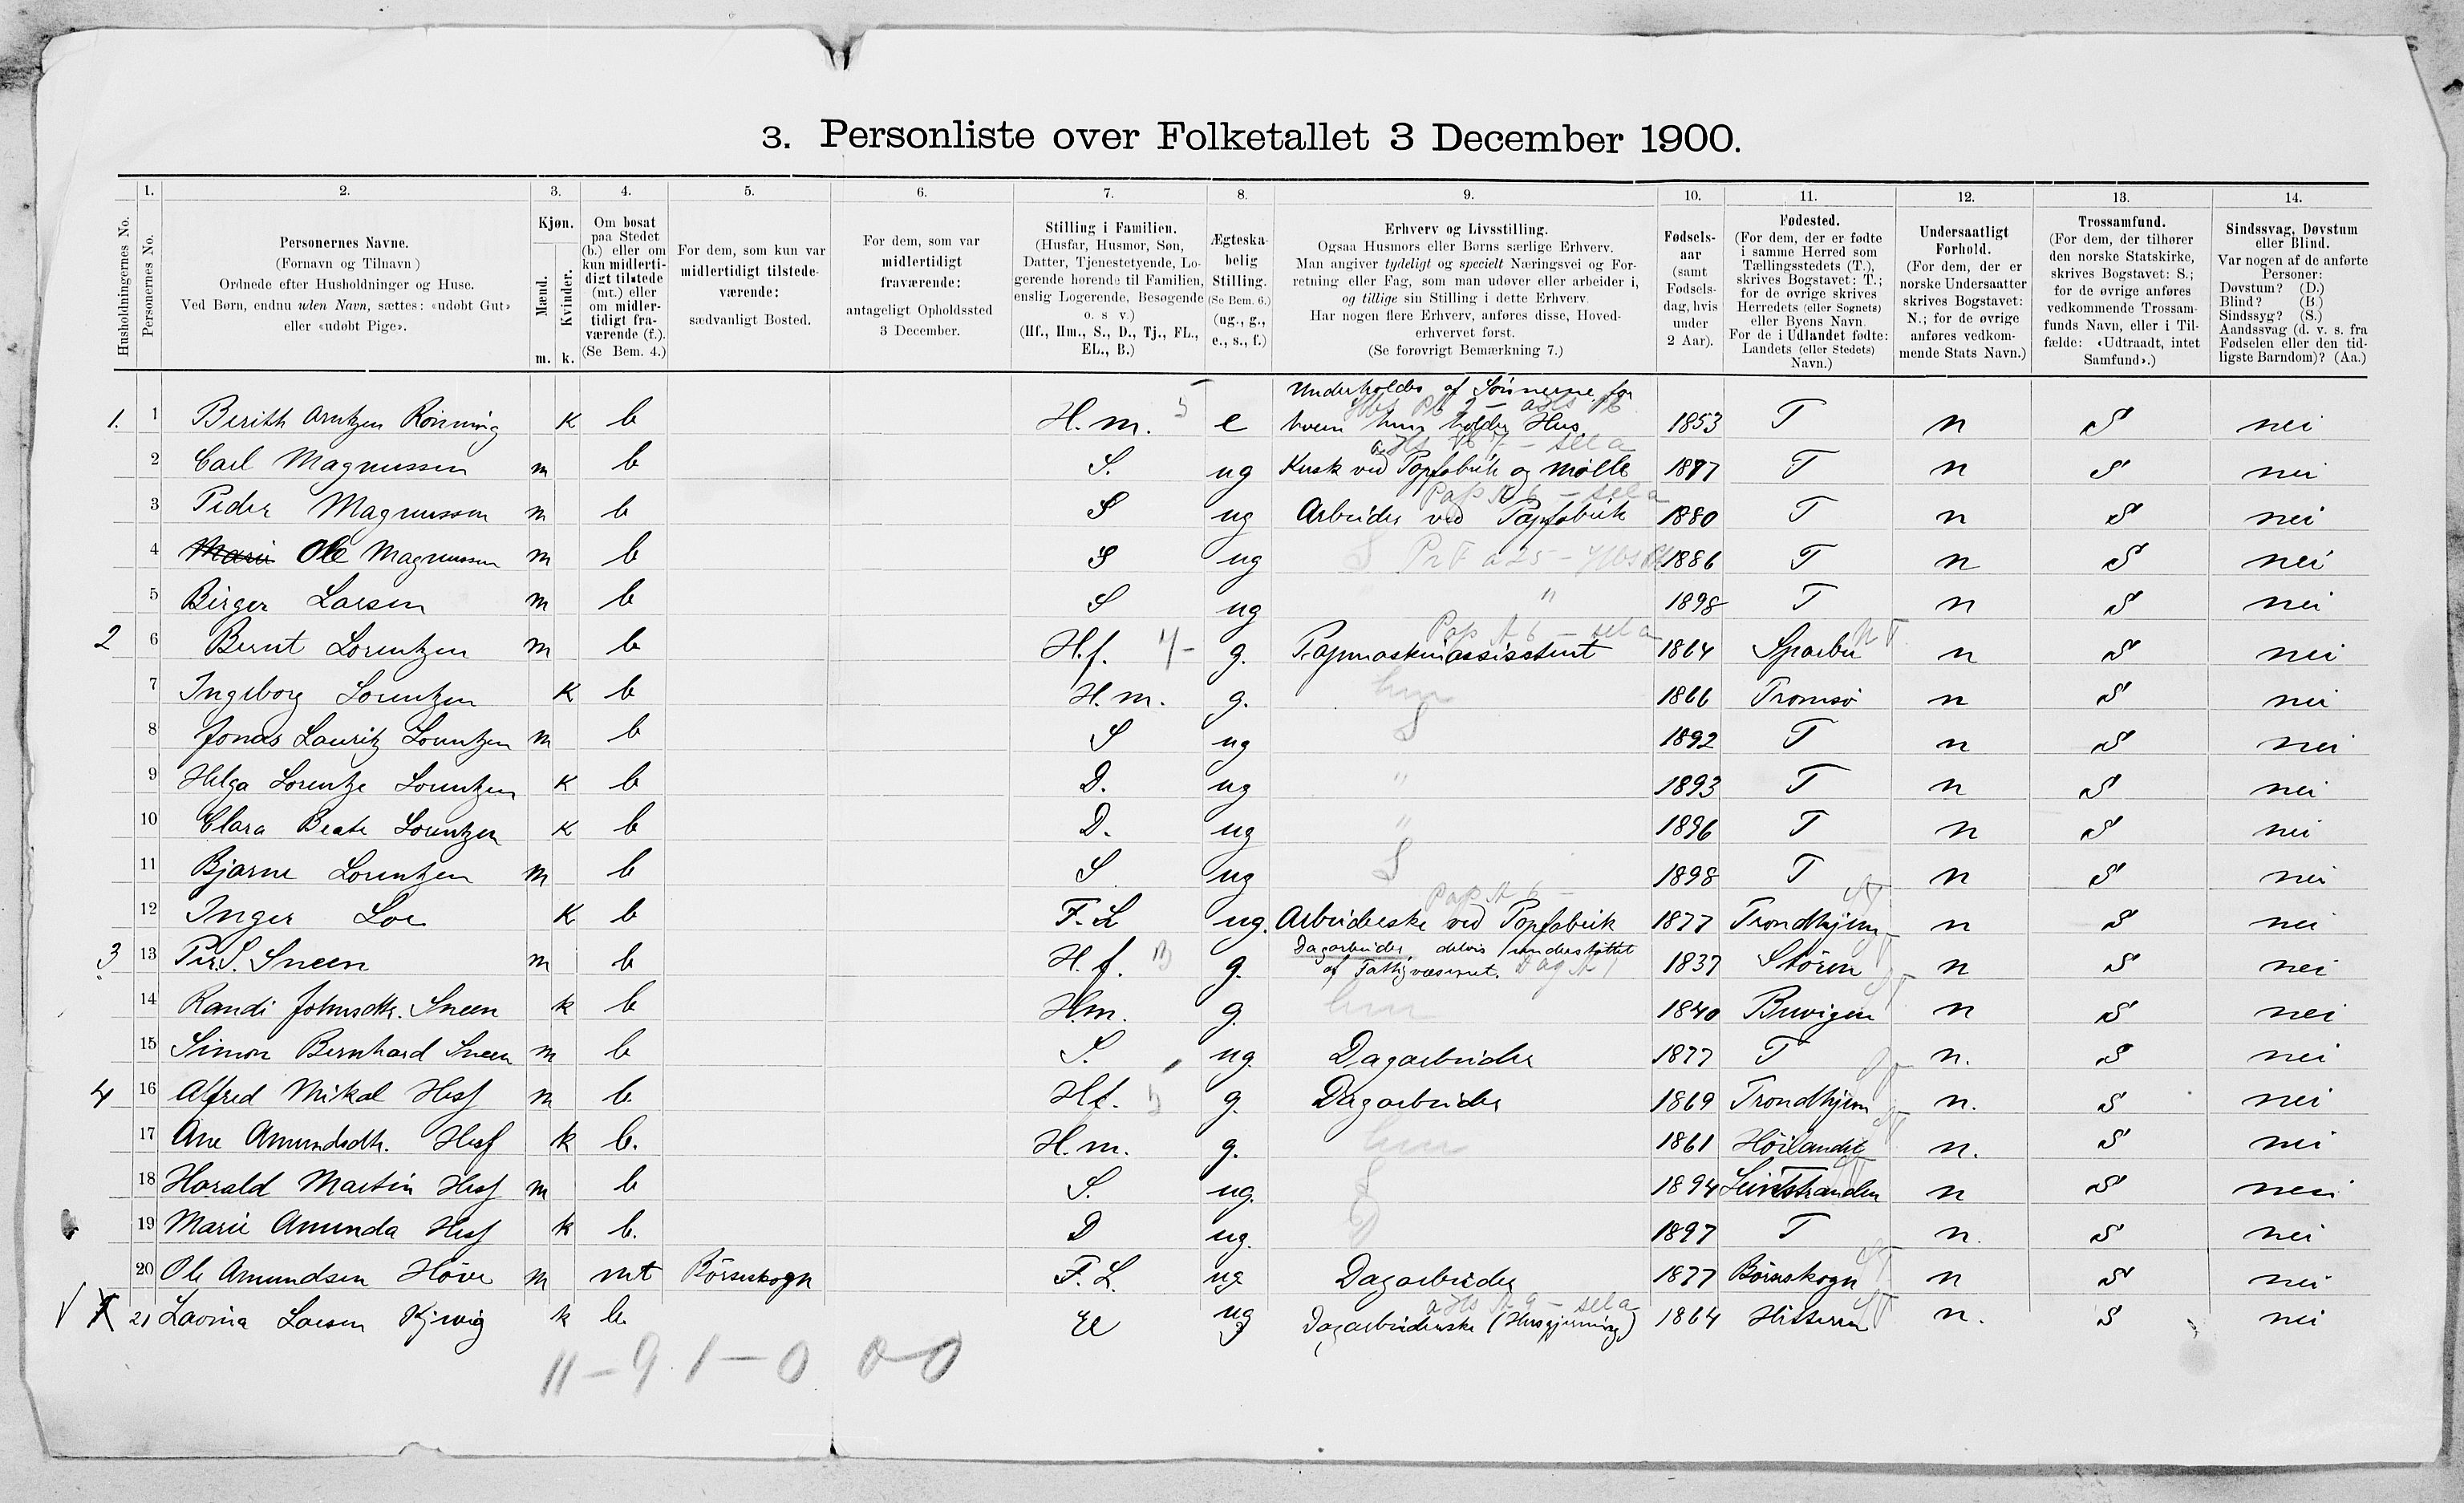 3. Personliste over Folketallet 3 December 1900.
Husholdningernes No.
1. Personernes No.
2. Personernes Navne.
(Fornavn og Tilnavn)
Ordnede efter Husholdninger og Huse.
Ved Børn, endnu uden Navn, sættes: «udøbt Gut»
eller «udøbt Pige».
3. Kjøn.
Mænd. m.
Kvinder. k.
4. Om bosat
paa Stedet
(b.) eller om
kun midlerti-
digt tilstede
(mt.) eller
om midler-
tidigt fra-
værende (f.).
(Se Bem. 4.)
5. For dem, som kun var
midlertidigt tilstede-
værende:
sædvanligt Bosted.
6. For dem, som var
midlertidigt
fraværende:
antageligt Opholdssted
3 December.
7. Stilling i Familien.
(Husfar, Husmor, Søn,
Datter, Tjenestetyende, Lo-
gerende hørende til Familien,
enslig Logerende, Besøgende
o. s v.)
(Hf., Hm., S., D., Tj., FL.,
EL., B.)
8. Ægteska-
belig
Stilling.
(Se Bem. 6.)
(ug., g.,
e., s., f.)
9. Erhverv og Livsstilling.
Ogsaa Husmors eller Børns særlige Erhverv.
Man angiver tydeligt og specielt Næringsvei og For-
retning eller Fag, som man udøver eller arbeider i,
og tillige sin Stilling i dette Erhverv.
Har nogen flere Erhverv, anføres disse, Hoved-
erhvervet først.
(Se forøvrigt Bemærkning 7.)
10. Fødsels-
aar
(samt
Fødsels-
dag, hvis
under
2 Aar).
11. Fødested.
(For dem, der er fødte
i samme Herred som
Tællingsstedets (T.),
skrives Bogstavet: T.;
for de øvrige skrives
Herredets (eller Sognets)
eller Byens Navn.
For de i Udlandet fødte:
Landets (eller Stedets)
Navn.)
12. Undersaatligt
Forhold.
(For dem, der er
norske Undersaatter
skrives Bogstavet:
N.; for de øvrige
anføres vedkom-
mende Stats Navn.)
13. Trossamfund.
(For dem, der tilhører
den norske Statskirke,
skrives Bogstavet: S.;
for de øvrige anføres
vedkommende Trossam-
funds Navn, eller i Til-
fælde: «Udtraadt, intet
Samfund».)
14. Sindssvag, Døvstum
eller Blind.
Var nogen af de anførte
Personer:
Døvstum? (D.)
Blind? (B.)
Sindssyg? (S.)
Aandssvag (d. v. s. fra
Fødselen eller den tid-
ligste Barndom)? (Aa.)
1. 1 Berith Arntzen Rönning k b H.m. 5 e Underholdes af Sönnerne for hvem hun holder Hus 1853 T n S nei
2 Carl Magnussen m b S. ug Kusk ved Papfabrik og Mölle 1877 T n S nei
3 Peder Magnussen m b S ug Arbeider ved Papfabrik 1880 T n S nei
4 Marie Ole Magnussen m b S ug 1886 T n S nei
5 Birger Larsen m b S ug " 1898 T n S nei
2 6 Bernt Lorentzen m b H.f. g. Papmaskinassisstent 1864 Sparbu n S nei
7 Ingeborg Lorentzen k b H.m. g. hm 1866 Tromsö n S nei
8 Jonas Lauritz Lorentzen m b S ug S 1892 T n S nei
9 Helga Lorentze Lorentzen k b D. ug " 1893 T n S nei
10 Clara Beate Lorentzen k b D. ug " 1896 T n S nei
11 Bjarne Lorentzen m b S ug S 1898 T n S nei
12 Inger Loe k b F.L ug. Arbeiderske ved Papfabrik 1877 Trondhjem n S nei
3 13 Per S. Sneen m b H.f. g. Dagarbeider, delvis understöttet af Fattigvæsenet. 1837 Stören n S nei
14 Randi Johnsdtr. Sneen k b Hm. g. hm 1840 Buvigen n S nei
15 Simon Bernhard Sneen m b S. ug. Dagarbeider 1877 T n. S nei
4 16 Alfred Mikal Hess m b. Hf. g. Dagarbeider 1869 Trondhjem n. S nei
17 Ane Amundsdtr. Hess k b. H.m. g. hm 1861 Höilandet n. S nei
18 Harald Martin Hess m b S. ug. S 1894 Leinstranden n S nei
19 Marie Amunda Hess k b. D ug. D 1897 T n. S nei
20 Ole Amundsen Höve m mt Börseskogn F.L. ug Dagarbeider 1877 Börseskogn n S nei
21 Lavina Larsen Kjevig k b. El ug Dagarbeiderske (Husgjerning) 1864 Hitteren n. S nei
11 – 9 1 – 0 0 – 0